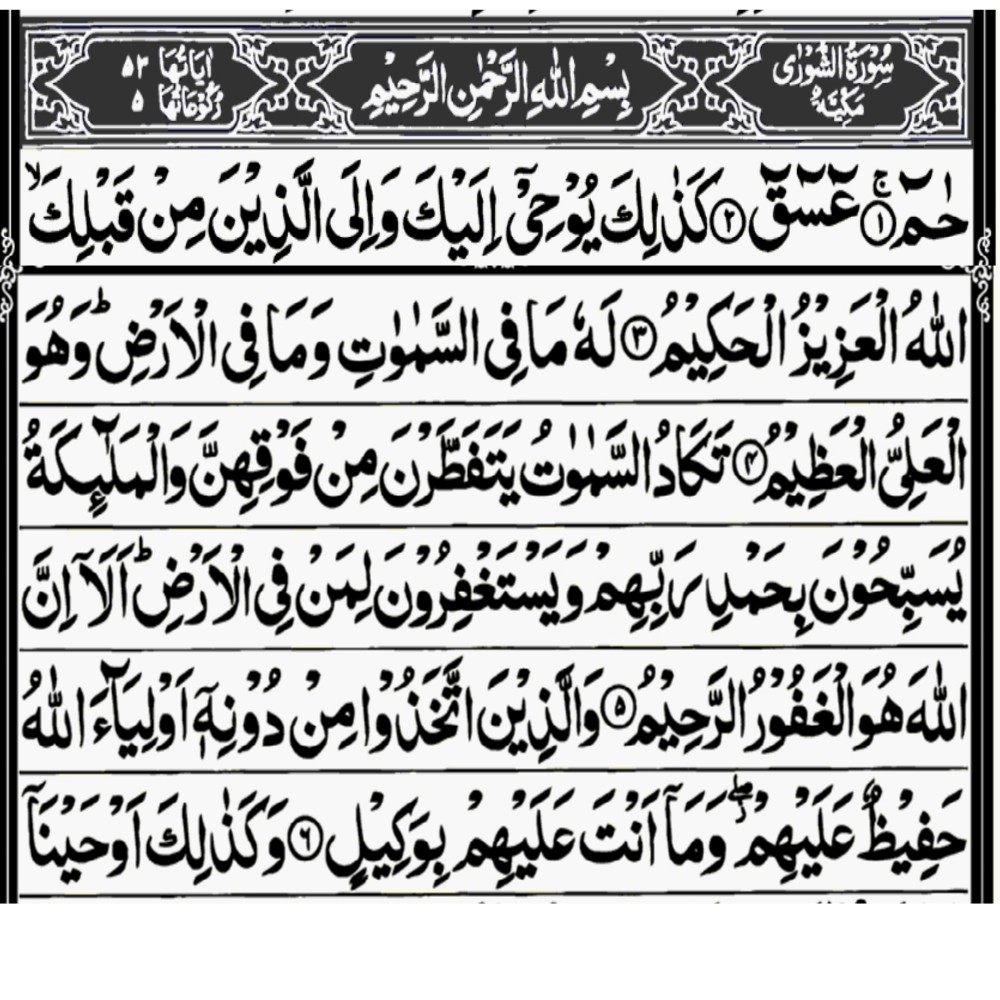 سُوْرَةُ الشُّوْرٰى مَكِّيَّةٌ
بِسْمِ اللّٰهِ الرَّحْمٰنِ الرَّحِيْمِ
اٰيَاتُهَا ٥٣ رُكُوْعَاتُهَا ٥
حٰمٓ ۚ﴿۱﴾ عٓسٓقٓ ﴿۲﴾ كَذٰلِكَ يُوْحِيْۤ اِلَيْكَ وَاِلَى الَّذِيْنَ مِنْ قَبْلِكَ ۙ
اللّٰهُ الْعَزِيْزُ الْحَكِيْمُ ﴿۳﴾ لَهٗ مَا فِي السَّمٰوٰتِ وَمَا فِي الْاَرْضِ ؕ وَهُوَ
الْعَلِيُّ الْعَظِيْمُ ﴿۴﴾ تَكَادُ السَّمٰوٰتُ يَتَفَطَّرْنَ مِنْ فَوْقِهِنَّ وَالْمَلٰٓئِكَةُ
يُسَبِّحُوْنَ بِحَمْدِ رَبِّهِمْ وَيَسْتَغْفِرُوْنَ لِمَنْ فِي الْاَرْضِ ؕ اَلَاۤ اِنَّ
اللّٰهَ هُوَ الْغَفُوْرُ الرَّحِيْمُ ﴿۵﴾ وَالَّذِيْنَ اتَّخَذُوْا مِنْ دُوْنِهٖۤ اَوْلِيَآءَ اللّٰهُ
حَفِيْظٌ عَلَيْهِمْ ۖ وَمَاۤ اَنْتَ عَلَيْهِمْ بِوَكِيْلٍ ﴿۶﴾ وَكَذٰلِكَ اَوْحَيْنَاۤ